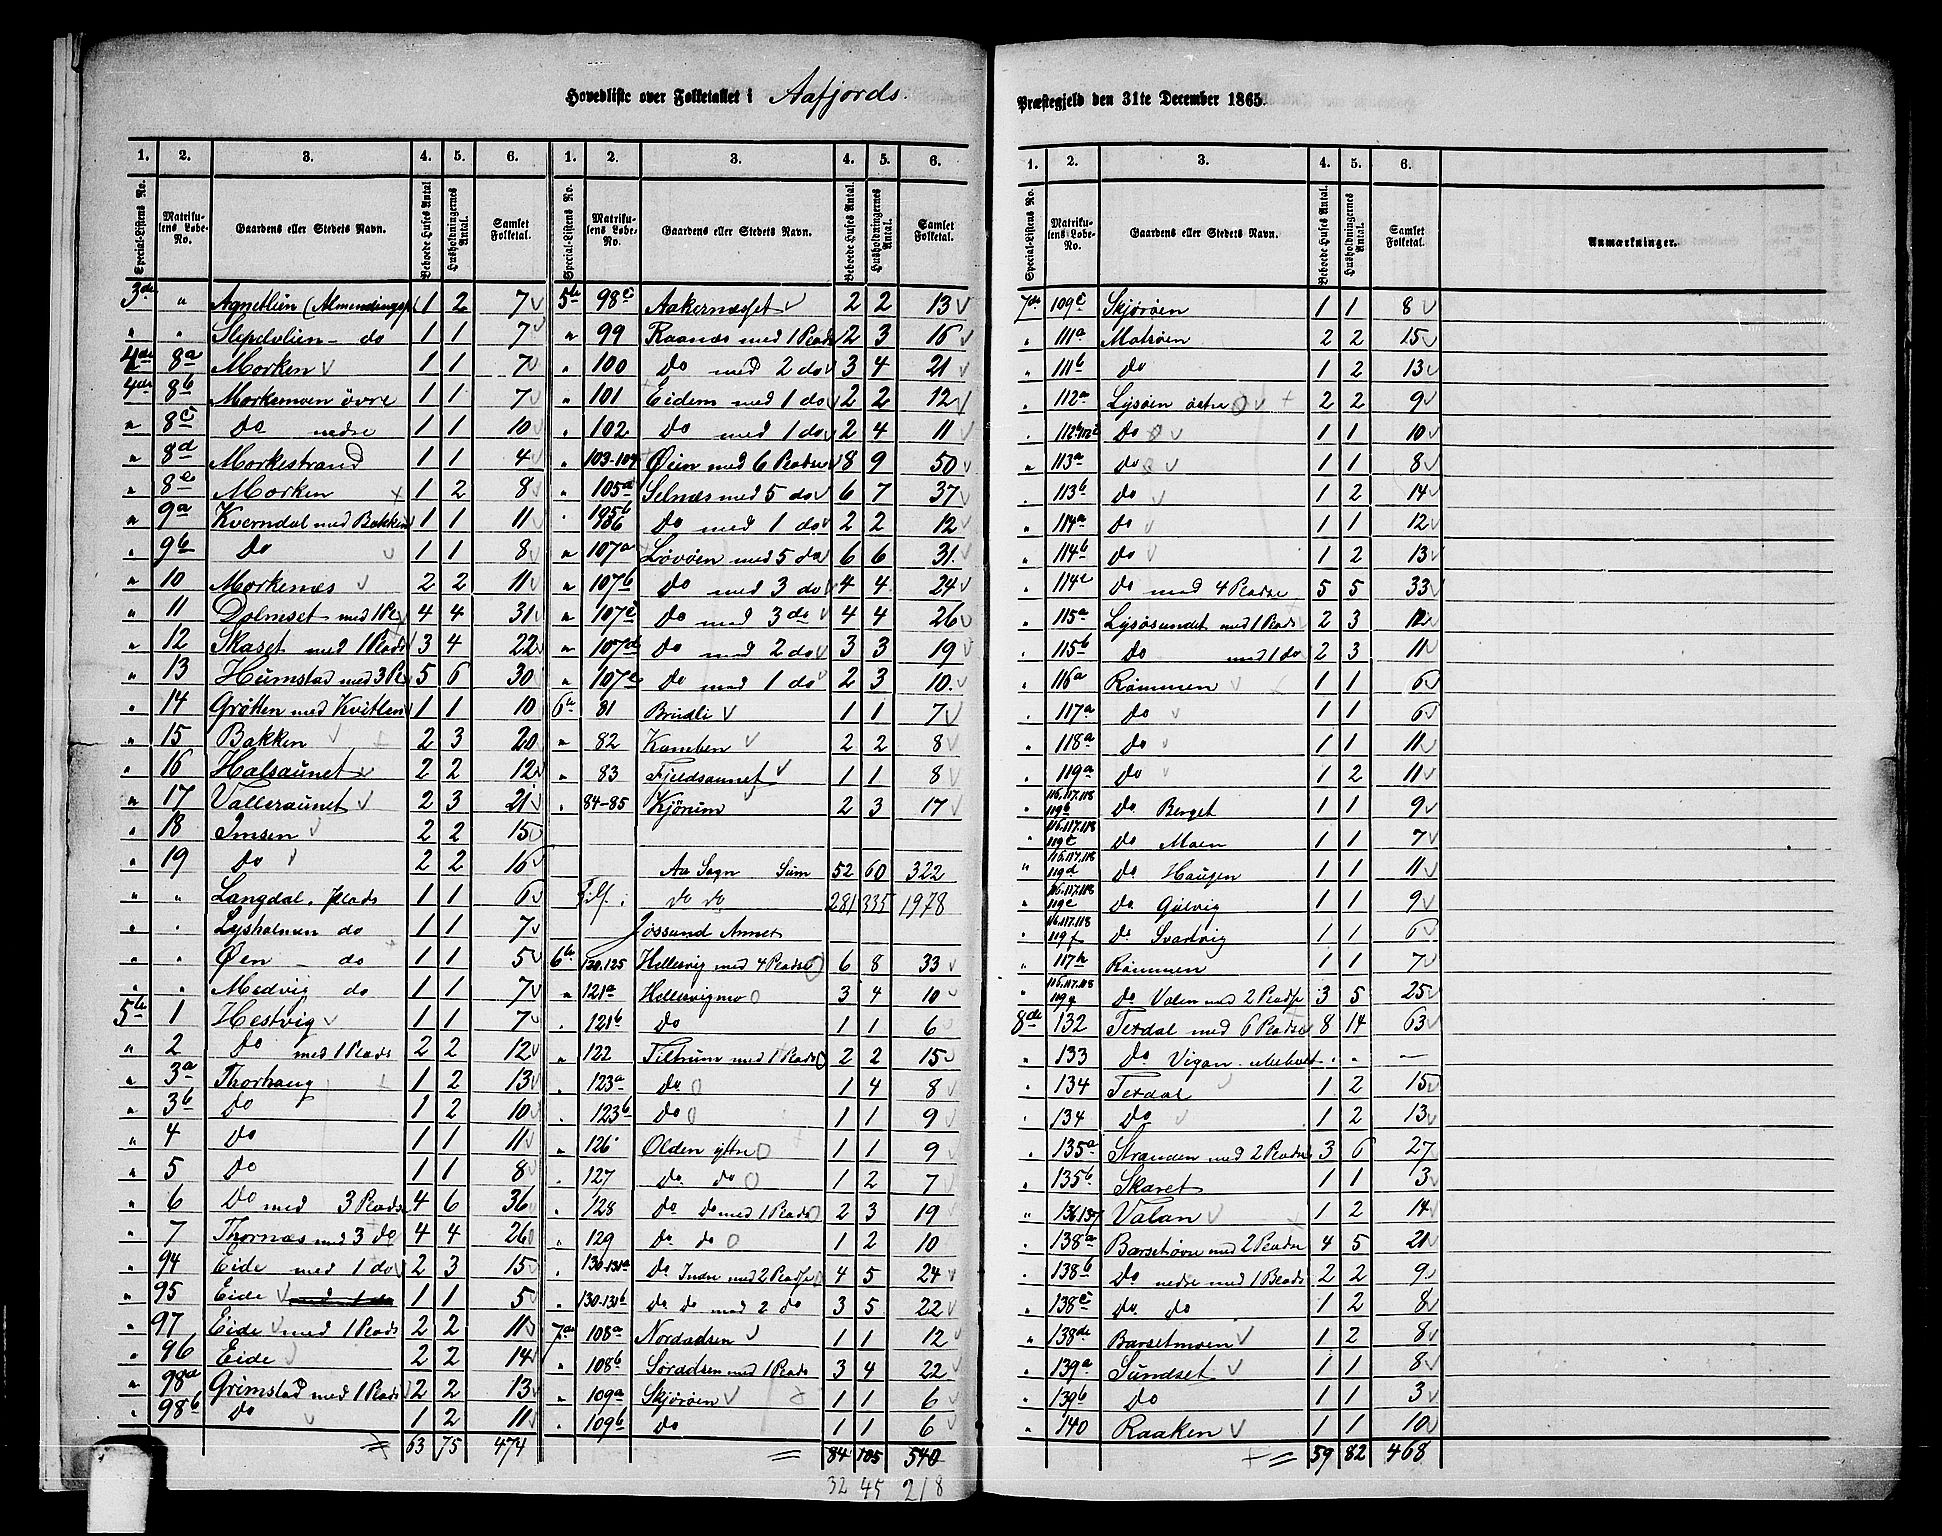 Hovedliste over Folketallet i Aafjords.
1. 2. 3. 4. 5. 6.
Special-Listens No. Matrikulens Løbe-No. Gaardens eller Stedets Navn. Beboede Huses Antal Husholdningernes Antal. Samlet Folketal.
3de " Agnetlien (Almendingspl 1 2 7
" " Slepdvlien - do 1 1 7
4de 8a Morken 1 1 7
4de 8b Morkemoen övre 1 1 7
" 8c Do nedre 1 1 10
" 8d Morkestrand 1 1 4
" 8e Morken 1 2 8
" 9a Kverndal med Bakken 1 1 11
" 9b Do 1 1 8
" 10 Morkenæs 2 2 11
" 11 Dolmset med 1 Pl 4 4 31
" 12 Skaset med 1 Plads 3 4 22
" 13 Humstad med 3 Pl 5 6 30
" 14 Grötten med Kvitlen 1 1 10
" 15 Bakken 2 3 20
" 16 Halsaunet 2 2 12
" 17 Valleraunet 2 3 21
" 18 Imsen 2 2 15
" 19 Do 2 2 16
" " Langdal, plads 1 1 6
" " Lysholmen do 1 1 7
" " Øen - do 1 1 5
" " Medvig do 1 1 7
5te 1 Hestvig 1 1 7
" 2 Do med 1 Plads 2 2 12
" 3a Thorhaug 1 2 13
" 3b Do 1 2 10
" 4 Do 1 1 11
" 5 Do 1 1 8
" 6 Do med 3 Plads 4 6 36
" 7 Thornæs med 3 do 4 4 26
" 94 Eide med 1 do 2 3 15
" 95 Eide 1 1 5
" 97 Eide med 1 Plads 2 2 11
" 96 Eide 2 2 14
" 98a Grimstad med 1 Plads 2 2 13
" 98b Do 1 2 11
63 75 474
1. 2. 3. 4. 5. 6.
Special-Listens No. Matrikulens Løbe-No. Gaardens eller Stedets Navn. Beboede Huses Antal. Husholdningernes Antal. Samlet Folketal.
5te 98c Aakernæsset 2 2 13
" 99 Raanæs med 1 Plads 2 3 16
" 100 Do med 2 do 3 4 21
" 101 Eidem med 1 do 2 2 12
" 102 Do med 1 do 2 4 11
" 103-104 Øien med 6 Pladse 8 9 50
" 105a Selnæs med 5 do 6 7 37
" 105b 106 Do med 1 do 2 2 12
" 107a Løvöen med 5 do 6 6 31
" 107b Do med 3 do 4 4 24
" 107c Do med 3 do 4 4 26
" 107d Do med 2 do 3 3 19
" 107e Do med 1 do 2 3 10
6te 81 Brudli 1 1 7
" 82 Kamben 2 2 8
" 83 Fjeldsaunet 1 1 8
" 84-85 Kjörum 2 3 17
Aa Sogn Sum 52 60 322
Tilf. do do 281 335 1978
Jössund Annex
6te 120.125 Hellesvig med 4 Pladse 6 8 33
" 121a Hellesvigmo 3 4 10
" 121b Do 1 1 6
" 122 Tiltrum med 1 Plads 2 2 15
" 123a Do 1 4 8
" 123b Do 1 1 9
" 126 Olden yttre 1 1 9
" 127 Do do 1 2 7
" 128 Do do med 1 Plads 2 3 19
" 129 Do do 1 2 10
" 130-131a Do Indre med 2 Pladse 4 5 24
" 130-131b Do do med 2 do 3 5 22
7de 108a Nordadsen 1 1 12
" 108b Söradsen med 1 Plads 3 4 22
" 109a Skjöröen 1 1 6
" 109b Do 1 1 6
84 105 540
32 45 218
Præstegjeld den 31te December 1865.
1. 2. 3. 4. 5. 6.
Special-Listens No. Matrikulens Løbe-No. Gaardens eller Stedets Navn. Beboede Huses Antal. Husholdningernes Antal. Samlet Folketal. Anmærkninger.
7de 109c Skjöröen 1 1 8
" 111a Matsöen 2 2 15
" 111b Do 1 2 13
" 112a Lysöen östre 2 2 9
" 112b 112c Do 1 1 10
" 113a Do 1 1 8
" 113b Do 1 2 14
" 114a Do 1 1 12
" 114b Do 1 2 13
" 114c Do med 4 Pladse 5 5 33
" 115a Lysösundet med 1 Plads 2 3 12
" 115b Do med 1 do 2 3 11
" 116a Römmen 1 1 6
" 117a Do 1 1 6
" 118a Do 1 1 11
" 119a Do 1 2 11
" 116.117.118 119b Do Berget 1 1 9
" 116.117.118 119c Do Moen 1 1 7
" 116.117.118 119d Do Haugen 1 1 11
" 116.117.118 119e Do Gulvig 1 1 9
" 116.117.118 119f Do Svartvig 1 1 6
" 117h Römmen 1 1 7
" 116.117.118 119g Do Valen med 2 Pladse 3 5 25
8de 132 Terdal med 6 Pladse 8 14 63
" 133 Do Vigan ubeboet " " —
" 134 Terdal 1 2 15
" 134 Do 1 2 13
" 135a Stranden med 2 Pladse 3 6 27
" 135b Skaret 1 1 3
" 136.137 Valan 1 2 14
" 138a Barset övre med 2 Pladse 4 5 21
" 138b Do nedre med 1 Plads 2 2 9
" 138c Do do 1 2 8
" 138d Barsetmoen 1 2 8
" 139a Sundset 1 1 8
" 139b Do 1 1 3
" 140 Raaken 1 1 10
59 82 468